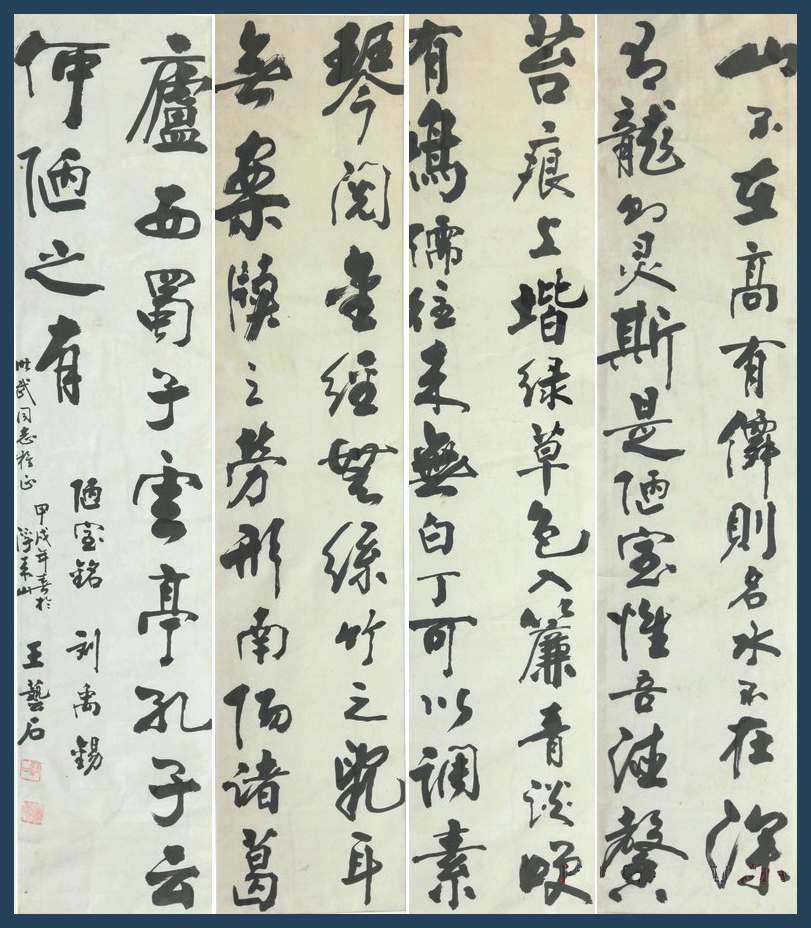 山不在高有僊則名水不在深
有龍则灵斯是陋室惟吾德馨
苔痕上堦绿草色入簾青谈咲
有鴻儒往来無白丁可以调素
琴阅金经無丝竹之乱耳
無案牍之劳形南阳诸葛
廬西蜀子雲亭孔子云
何陋之有
陋室铭 刘禹锡
武同志指正
甲戌年春於
浮来山
王藝石